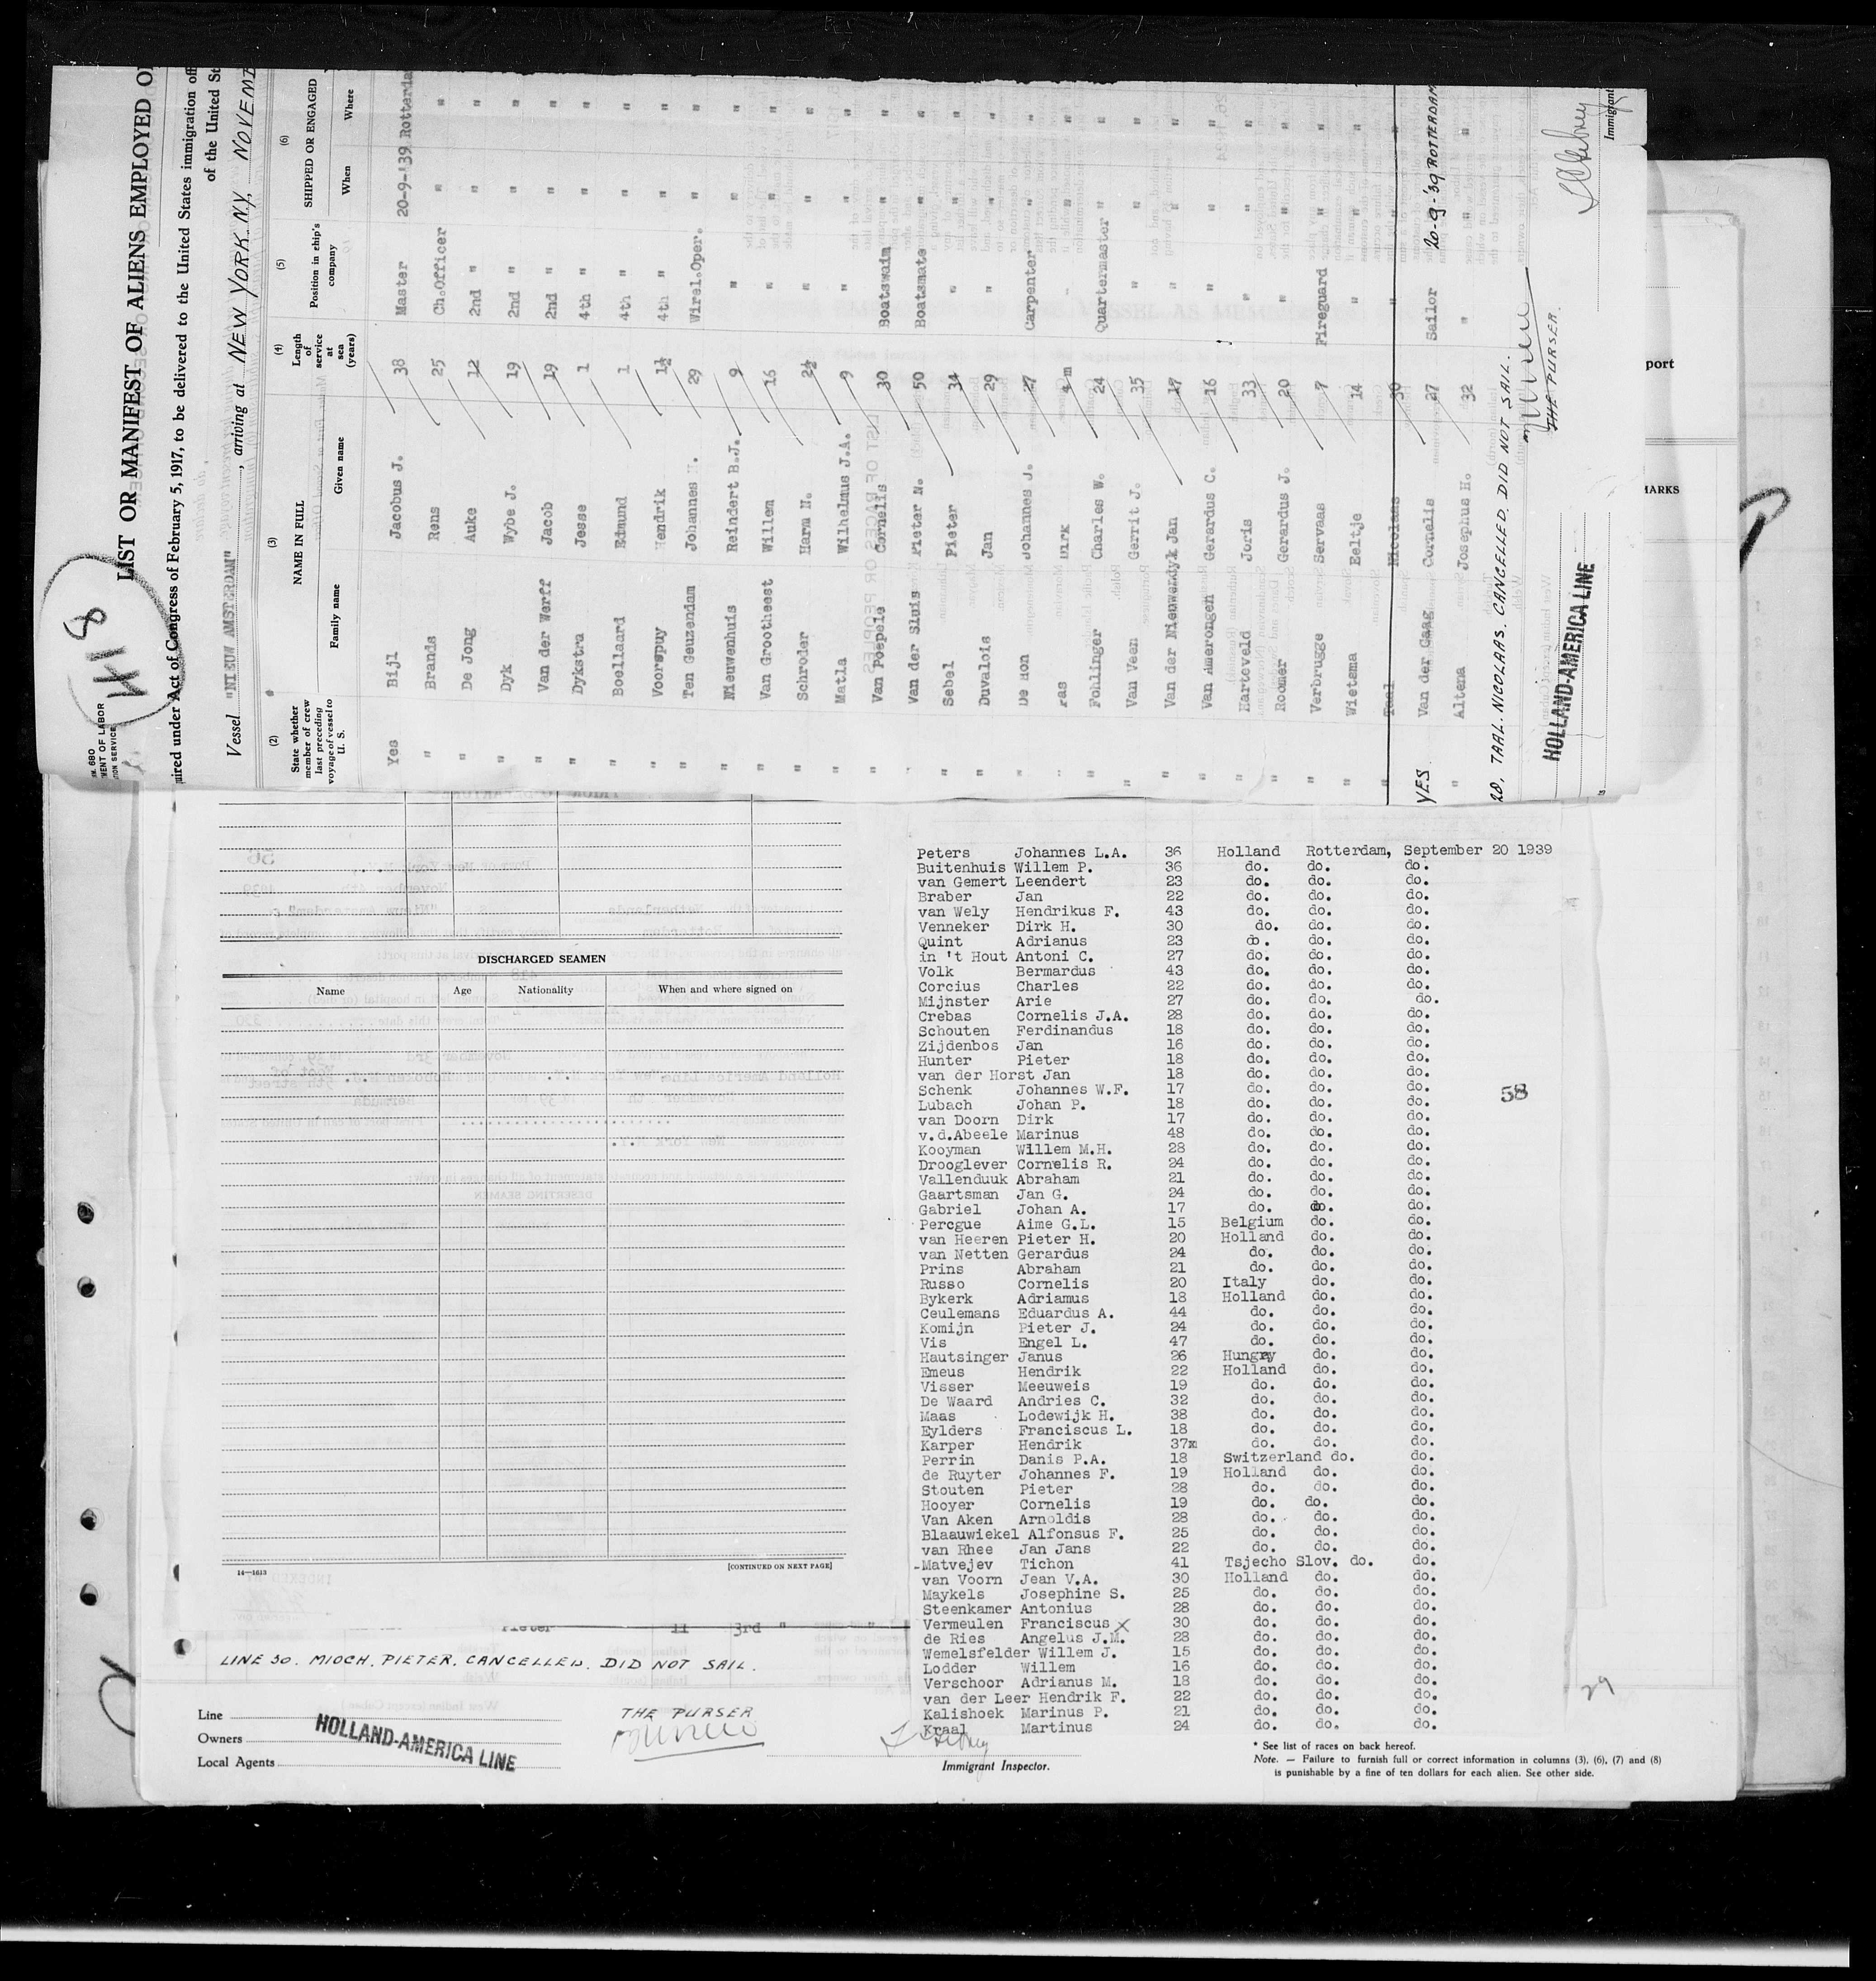 418
LIST OR MANIFEST OF ALIENS EMPLOYED O
uired under Act of Congress of February 5, 1917, to be delivered to the United States immigration off
of the United St
Vessel "NIEUW AMSTERDAM", arriving at NEW YORK N.Y., NOVEMB
(2) (3) (4) (5) (6)
State whether member of crew last preceding voyage of vessel to U. S. NAME IN FULL Length of service at sea (years) Position in ship's company SHIPPED OR ENGAGED
Family name Given name When Where
Yes Bijl Jacobus J. 38 Master 20-9-'39 Rotterda
" Brands Rens 25 Ch.Officer " "
" De Jong Auke 12 2nd " " "
" Dyk Wybe J. 19 2nd " " "
" Van der Werff Jacob 19 2nd " " "
" Dykstra Jesse 1 4th " " "
" Boellard Edmund 1 4th " " "
" Voorspuy Hendrik 1½ 4th " " "
" Ten Geuzendam Johannes 29 Wirel.Oper. " "
" Nieuwenhuis Reindert B.J. 9 " " "
" Van Grootheest Willem 16 " " "
" Schroder Harm N. 2½ " " "
" Matla Wilhelmus J.A. 9 " " "
" Van Pospele Cornelis 30 Boatswain " "
" Van der Sluis Pieter N. 50 Boatsmate " "
" Sebel Pieter 34 " " "
" Duvalois Jan 29 " " "
" De Mon Johannes J. 27 Carpenter " "
" Pas Dirk 4 m " " "
" Fohlinger Charles W. 24 Quartermaster " "
" Van Veen Gerrit J. 35 " " "
" Van der Nieuwendyk Jan 17 " " "
" Van Amerongen Gerardus C. 16 " " "
" Harteveld Joris 33 " " "
" Roomer Gerardus J. 20 " " "
" Verbrugge Servaas 7 Fireguard " "
" Wietsma Eeltje 14 " " "
" Taal Nicolaas 30 " " "
YES Van der Gaag Cornelis 27 Sailor 20-9-'39 ROTTERDAM
" Altena Josephus H. 32 " " "
28. TAAL. NICOLAAS. CANCELLED. DID NOT SAIL.
THE PURSER.
HOLLAND-AMERICA LINE
Immigrant
port
MARKS
DISCHARGED SEAMEN
Name Age Nationality When and where signed on
14—1613 [CONTINUED ON NEXT PAGE]
Peters Johannes L.A. 36 Holland Rotterdam, September 20 1939
Buitenhuis Willem P. 36 do. do. do.
van Gemert Leendert 23 do. do. do.
Braber Jan 22 do. do. do.
van Wely Hendrikus F. 43 do. do. do.
Venneker Dirk H. 30 do. do. do.
Quint Adrianus 23 do. do. do.
in 't Hout Antoni C. 27 do. do. do.
Volk Bermardus 43 do. do. do.
Corcius Charles 22 do. do. do.
Mijnster Arie 27 do. do. do.
Crebas Cornelis J.A. 28 do. do. do.
Schouten Ferdinandus 18 do. do. do.
Zijdenbos Jan 16 do. do. do.
Hunter Pieter 18 do. do. do.
van der Horst Jan 18 do. do. do.
Schenk Johannes W.F. 17 do. do. do.
58
Lubach Johan P. 18 do. do. do.
van Doorn Dirk 17 do. do. do.
v.d.Abeele Marinus 48 do. do. do.
Kooyman Willem M.H. 28 do. do. do.
Drooglever Cornelis R. 24 do. do. do.
Vallenduuk Abraham 21 do. do. do.
Gaartsman Jan G. 24 do. do. do.
Gabriel Johan A. 17 do. do. do.
Percgue Aime G.L. 15 Belgium do. do.
van Heeren Pieter H. 20 Holland do. do.
van Netten Gerardus 24 do. do. do.
Prins Abraham 21 do. do. do.
Russo Cornelis 20 Italy do. do.
Bykerk Adriamus 18 Holland do. do.
Ceulemans Eduardus A. 44 do. do. do.
Komijn Pieter J. 24 do. do. do.
Vis Engel L. 47 do. do. do.
Hautsinger Janus 26 Hungry do. do.
Emeus Hendrik 22 Holland do. do.
Visser Meeuweis 19 do. do. do.
De Waard Andries C. 32 do. do. do.
Maas Lodewijk H. 38 do. do. do.
Eylders Franciscus L. 18 do. do. do.
Karper Hendrik 37x do. do. do.
Perrin Danis P.A. 18 Switzerland do. do.
de Ruyter Johannes F. 19 Holland do. do.
Stouten Pieter 28 do. do. do.
Hooyer Cornelis 19 do. do. do.
Van Aken Arnoldis 28 do. do. do.
Blaauwiekel Alfonsus F. 25 do. do. do.
van Rhee Jan Jans 22 do. do. do.
-Matvejev Tichon 41 Tsjecho Slov. do. do.
van Voorn Jean V.A. 30 Holland do. do.
Maykels Josephine S. 25 do. do. do.
Steenkamer Antonius 28 do. do. do.
Vermeulen Franciscus X 30 do. do. do.
de Ries Angelus J.M. 28 do. do. do.
Wemelsfelder Willem J. 15 do. do. do.
Lodder Willem 16 do. do. do.
Verschoor Adrianus M. 18 do. do. do.
van der Leer Hendrik F. 22 do. do. do.
Kalishoek Marinus P. 21 do. do. do.
Kraal Martinus 24 do. do. do.
Pieter 11 3rd " "
LINE 30. MIOCH. PIETER. CANCELLED. DID NOT SAIL.
29
Line
Owners
Local Agents
HOLLAND-AMERICA LINE
THE PURSER
Immigrant Inspector.
* See list of races on back hereof.
Note. — Failure to furnish full or correct information in columns (3), (6), (7) and (8)
is punishable by a fine of ten dollars for each alien. See other side.